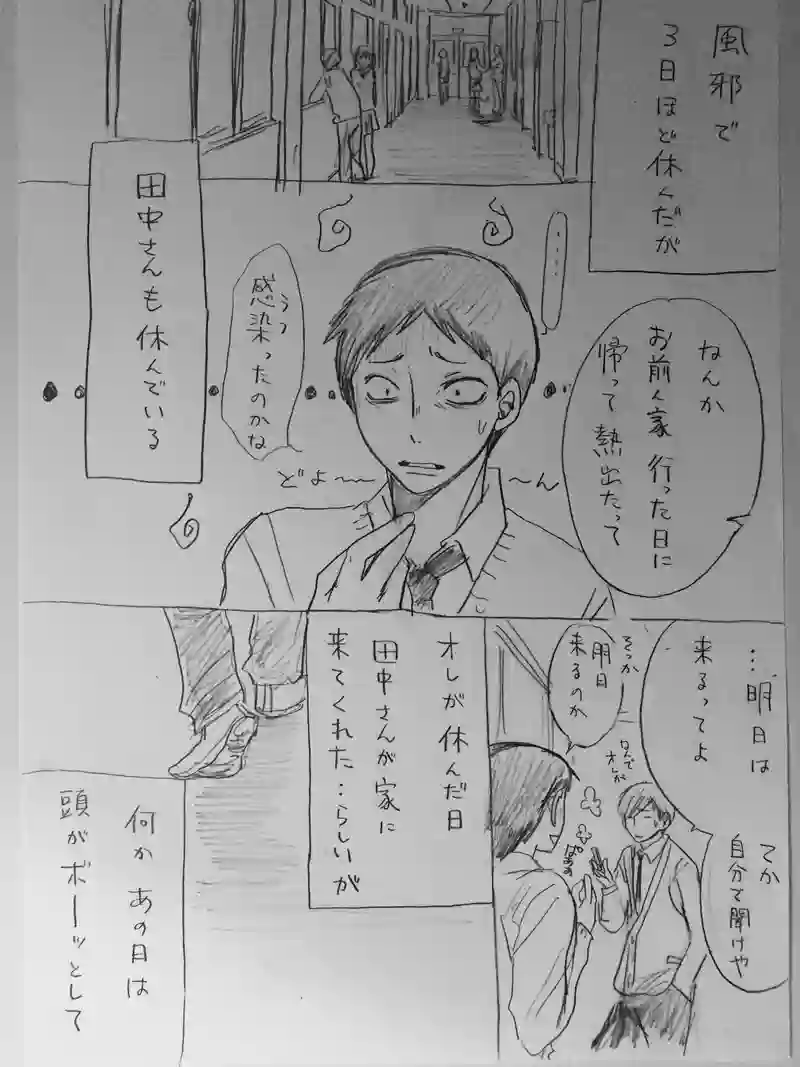 風邪で
3日ほど休んだが
田中さんも休んでいる
‥‥
なんか
お前ん家行った日に
帰って熱出たって
うつ
感染ったのかな
どよ〜〜
〜ん
…明日は
来るってよ
てか
自分で聞けや
そっか
明日
来るのか
なんでオレが
ぱぁぁ
オレが休んだ日
田中さんが家に
来てくれた‥らしいが
何かあの日は
頭がボーッとして